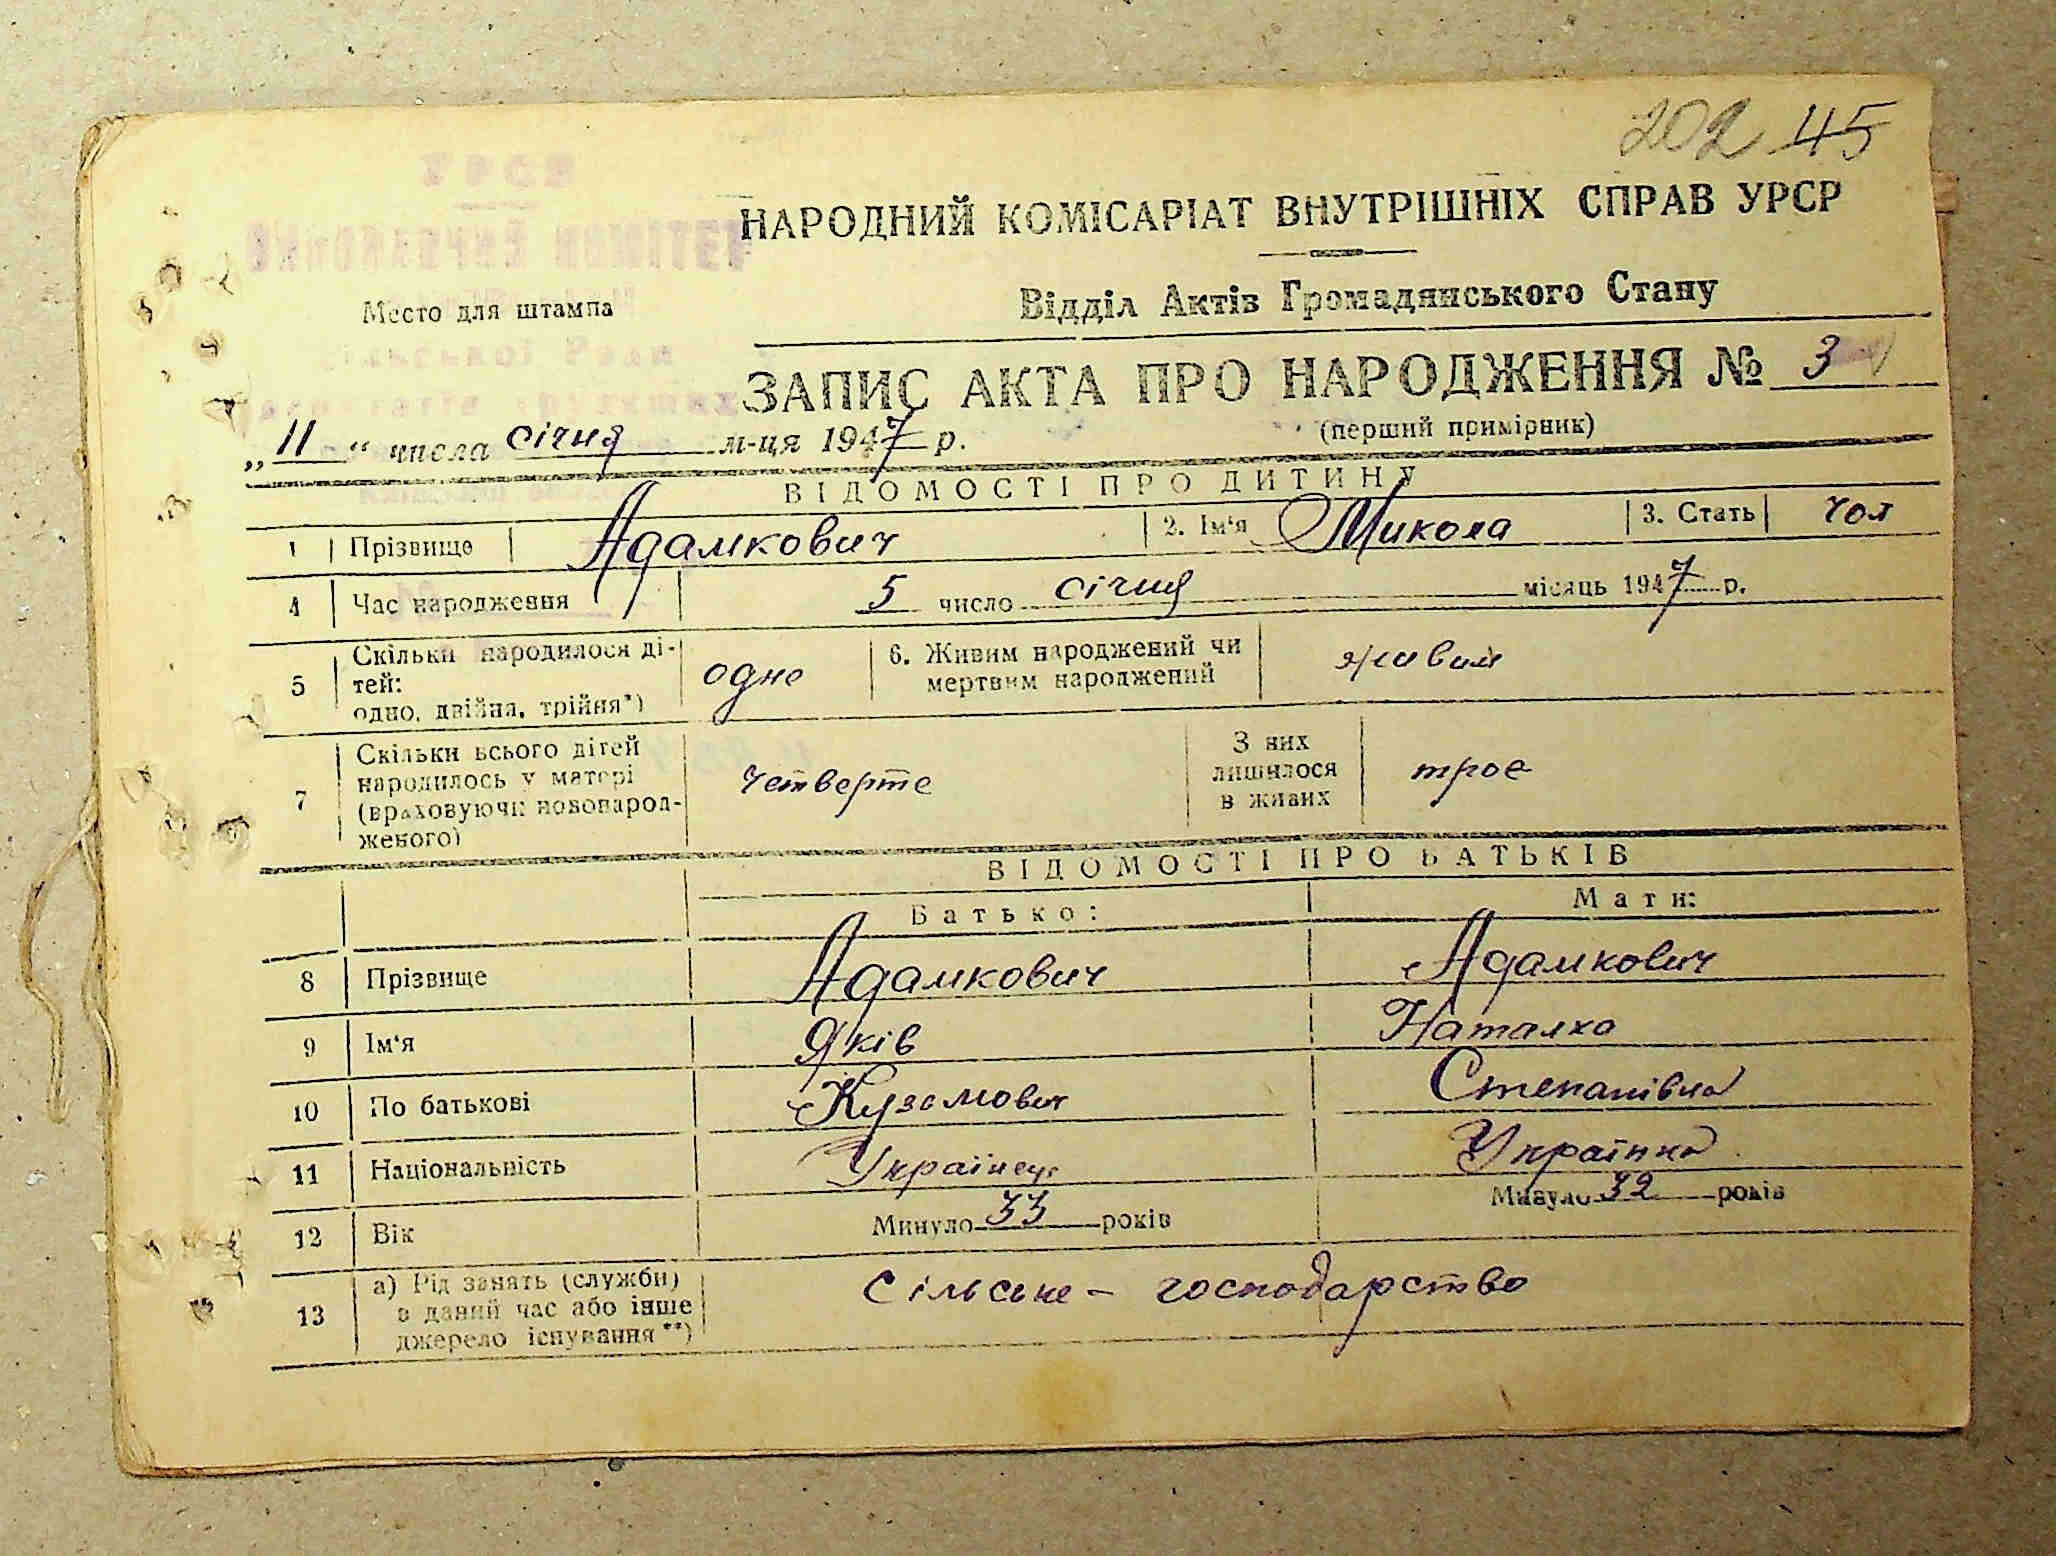 202 45
НАРОДНИЙ КОМІСАРІАТ ВНУТРІШНІХ СПРАВ УРСР
Место для штампа
Відділ Актів Громадянського Стану
ЗАПИС АКТА ПРО НАРОДЖЕННЯ № 3
(перший примірник)
„11“ числа січня м-ця 1947 р.
ВІДОМОСТІ ПРО ДИТИНУ
1 Прізвище Адамкович 2. Ім‘я Микола 3. Стать чол
4 Час народження 5 число січня місяць 1947 р.
5 Скільки народилося ді-
тей:
одно, двійня, трійня*)
одне
6. Живим народжений чи
мертвим народжений
живим
7 Скільки всього дітей
народилось у матері
(враховуючи новонарод-
женого)
четверте
З них
лишилося
в живих
троє
ВІДОМОСТІ ПРО БАТЬКІВ
Батько: Мати:
8 Прізвище Адамкович Адамкович
9 Ім‘я Яків Наталка
10 По батькові Куземович Степанівна
11 Національність Українець Українка
12 Вік Минуло 33 років Минуло 32 років
13 а) Рід занять (служби)
в даний час або інше
джерело існування**)
сільське - господарство